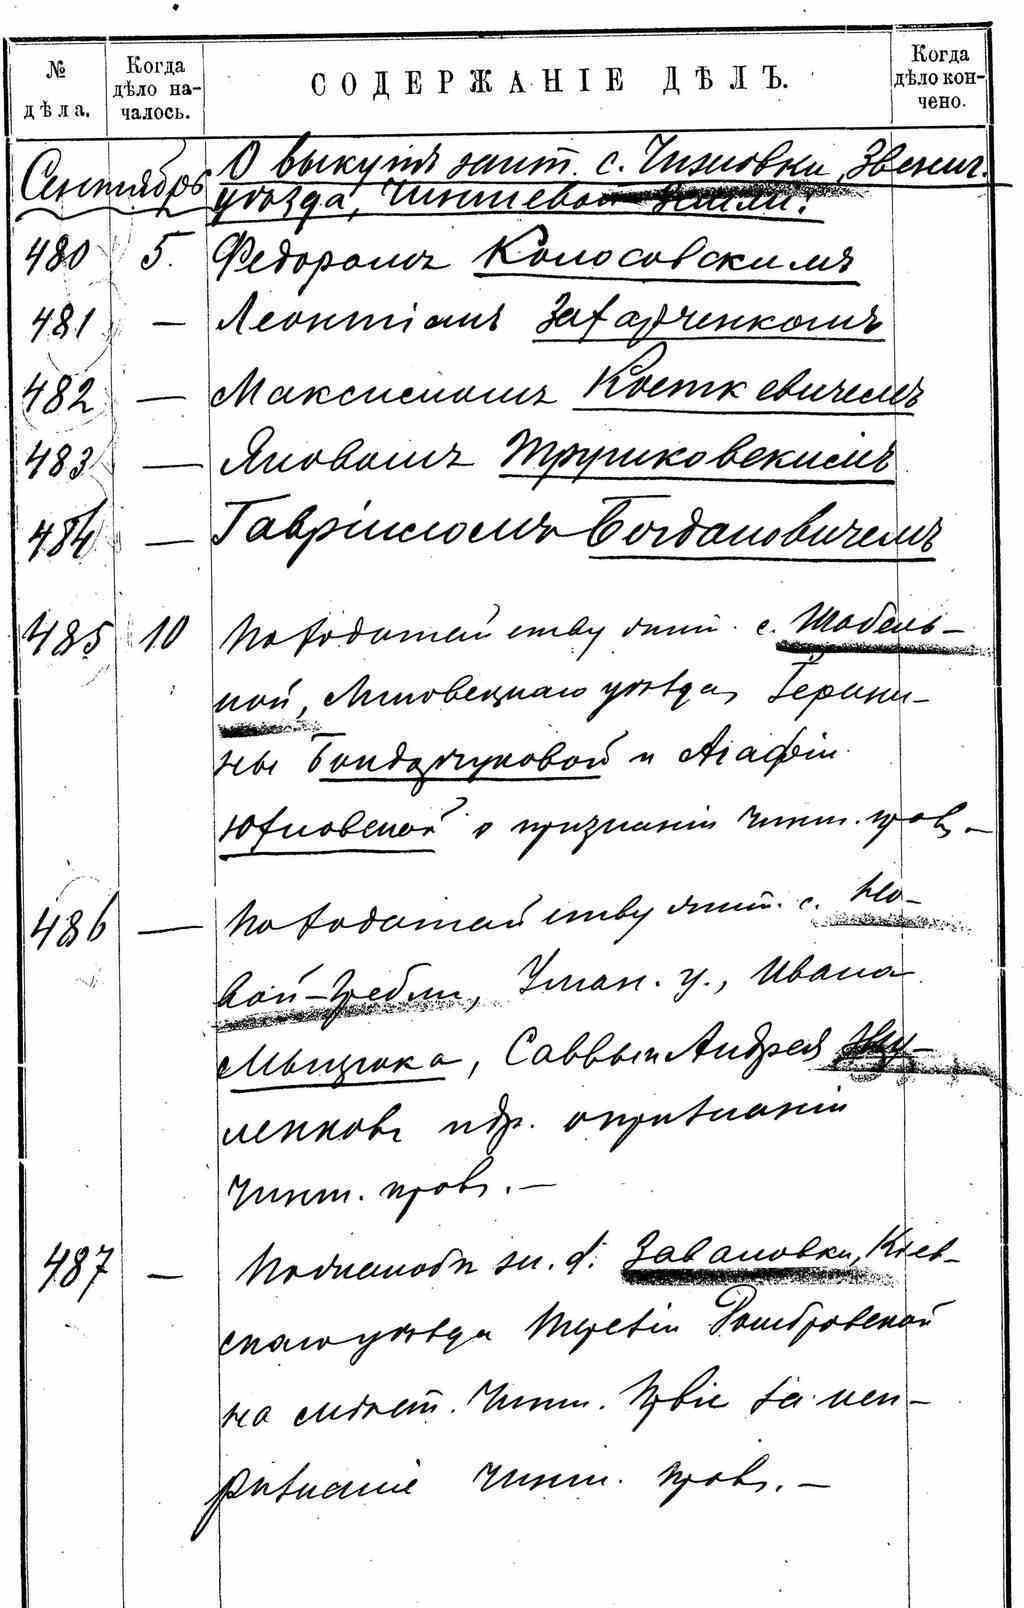 № дѣла.
Когда дѣло началось.
СОДЕРЖАНІЕ ДѢЛЪ.
Когда дѣло кончено.
Сентябрь
О выкупѣ жит. с. Чижовки, Звениг.
уѣзда, чиншевой земли:
480 5. Федоромъ Колосовскимъ
481 — Леонтіемъ Захарченкомъ
482 — Максимомъ Косткевичемъ
483 — Яковомъ Трушковскимъ
484 — Гавріиломъ Богдановичемъ
485 10 По ходатайству жит. с. Шабель-
ной, Липовецкаго уѣзда,
ны Бондарчуковой и Агафіи
Юхновской о признаніи чинш. правъ.—
486 — По ходатайству жит. с. Но-
вой-Гребли, Уман. у., Ивана
Мыщука, Саввы и Андрея
ленковъ и др. о признаніи
чинш. правъ.—
487 — По жалобѣ жи. д. Завановки, Кіев-
скаго уѣзда Терезіи Домбровской
на мѣст. чинш. Пр-віе за неп-
ризнаніе чинш. правъ.—